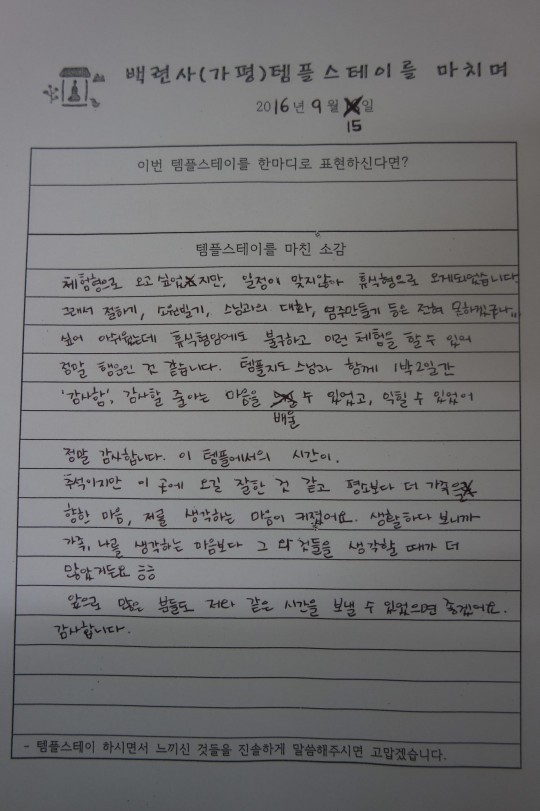 백련사(가평)템플스테이를 마치며
2016년 9월 15일
이번 템플스테이를 한마디로 표현하신다면?
템플스테이를 마친 소감
체험형으로 오고 싶었지만, 일정이 맞지않아 휴식형으로 오게되었습니다.
그래서 절하기, 소원빌기, 스님과의 대화, 염주만들기 등은 전혀 못하겠구나,,,
싶어 아쉬웠는데 휴식형임에도 불구하고 이런 체험을 할 수 있어
정말 행운인 것 같습니다. 템플지도 스님과 함께 1박2일간
'감사함', 감사할 줄아는 마음을 배울 수 있었고, 익힐 수 있었어
정말 감사합니다. 이 템플에서의 시간이.
추석이지만 이 곳에 오길 잘한 것 같고 평소보다 더 가족을
향한 마음, 저를 생각하는 마음이 커졌어요. 생활하다 보니까
가족, 나를 생각하는 마음보다 그 외 것들을 생각할 때가 더
많았거든요 ㅎㅎ
앞으로 많은 분들도 저와 같은 시간을 보낼 수 있었으면 좋겠어요.
감사합니다.
- 템플스테이 하시면서 느끼신 것들을 진솔하게 말씀해주시면 고맙겠습니다.